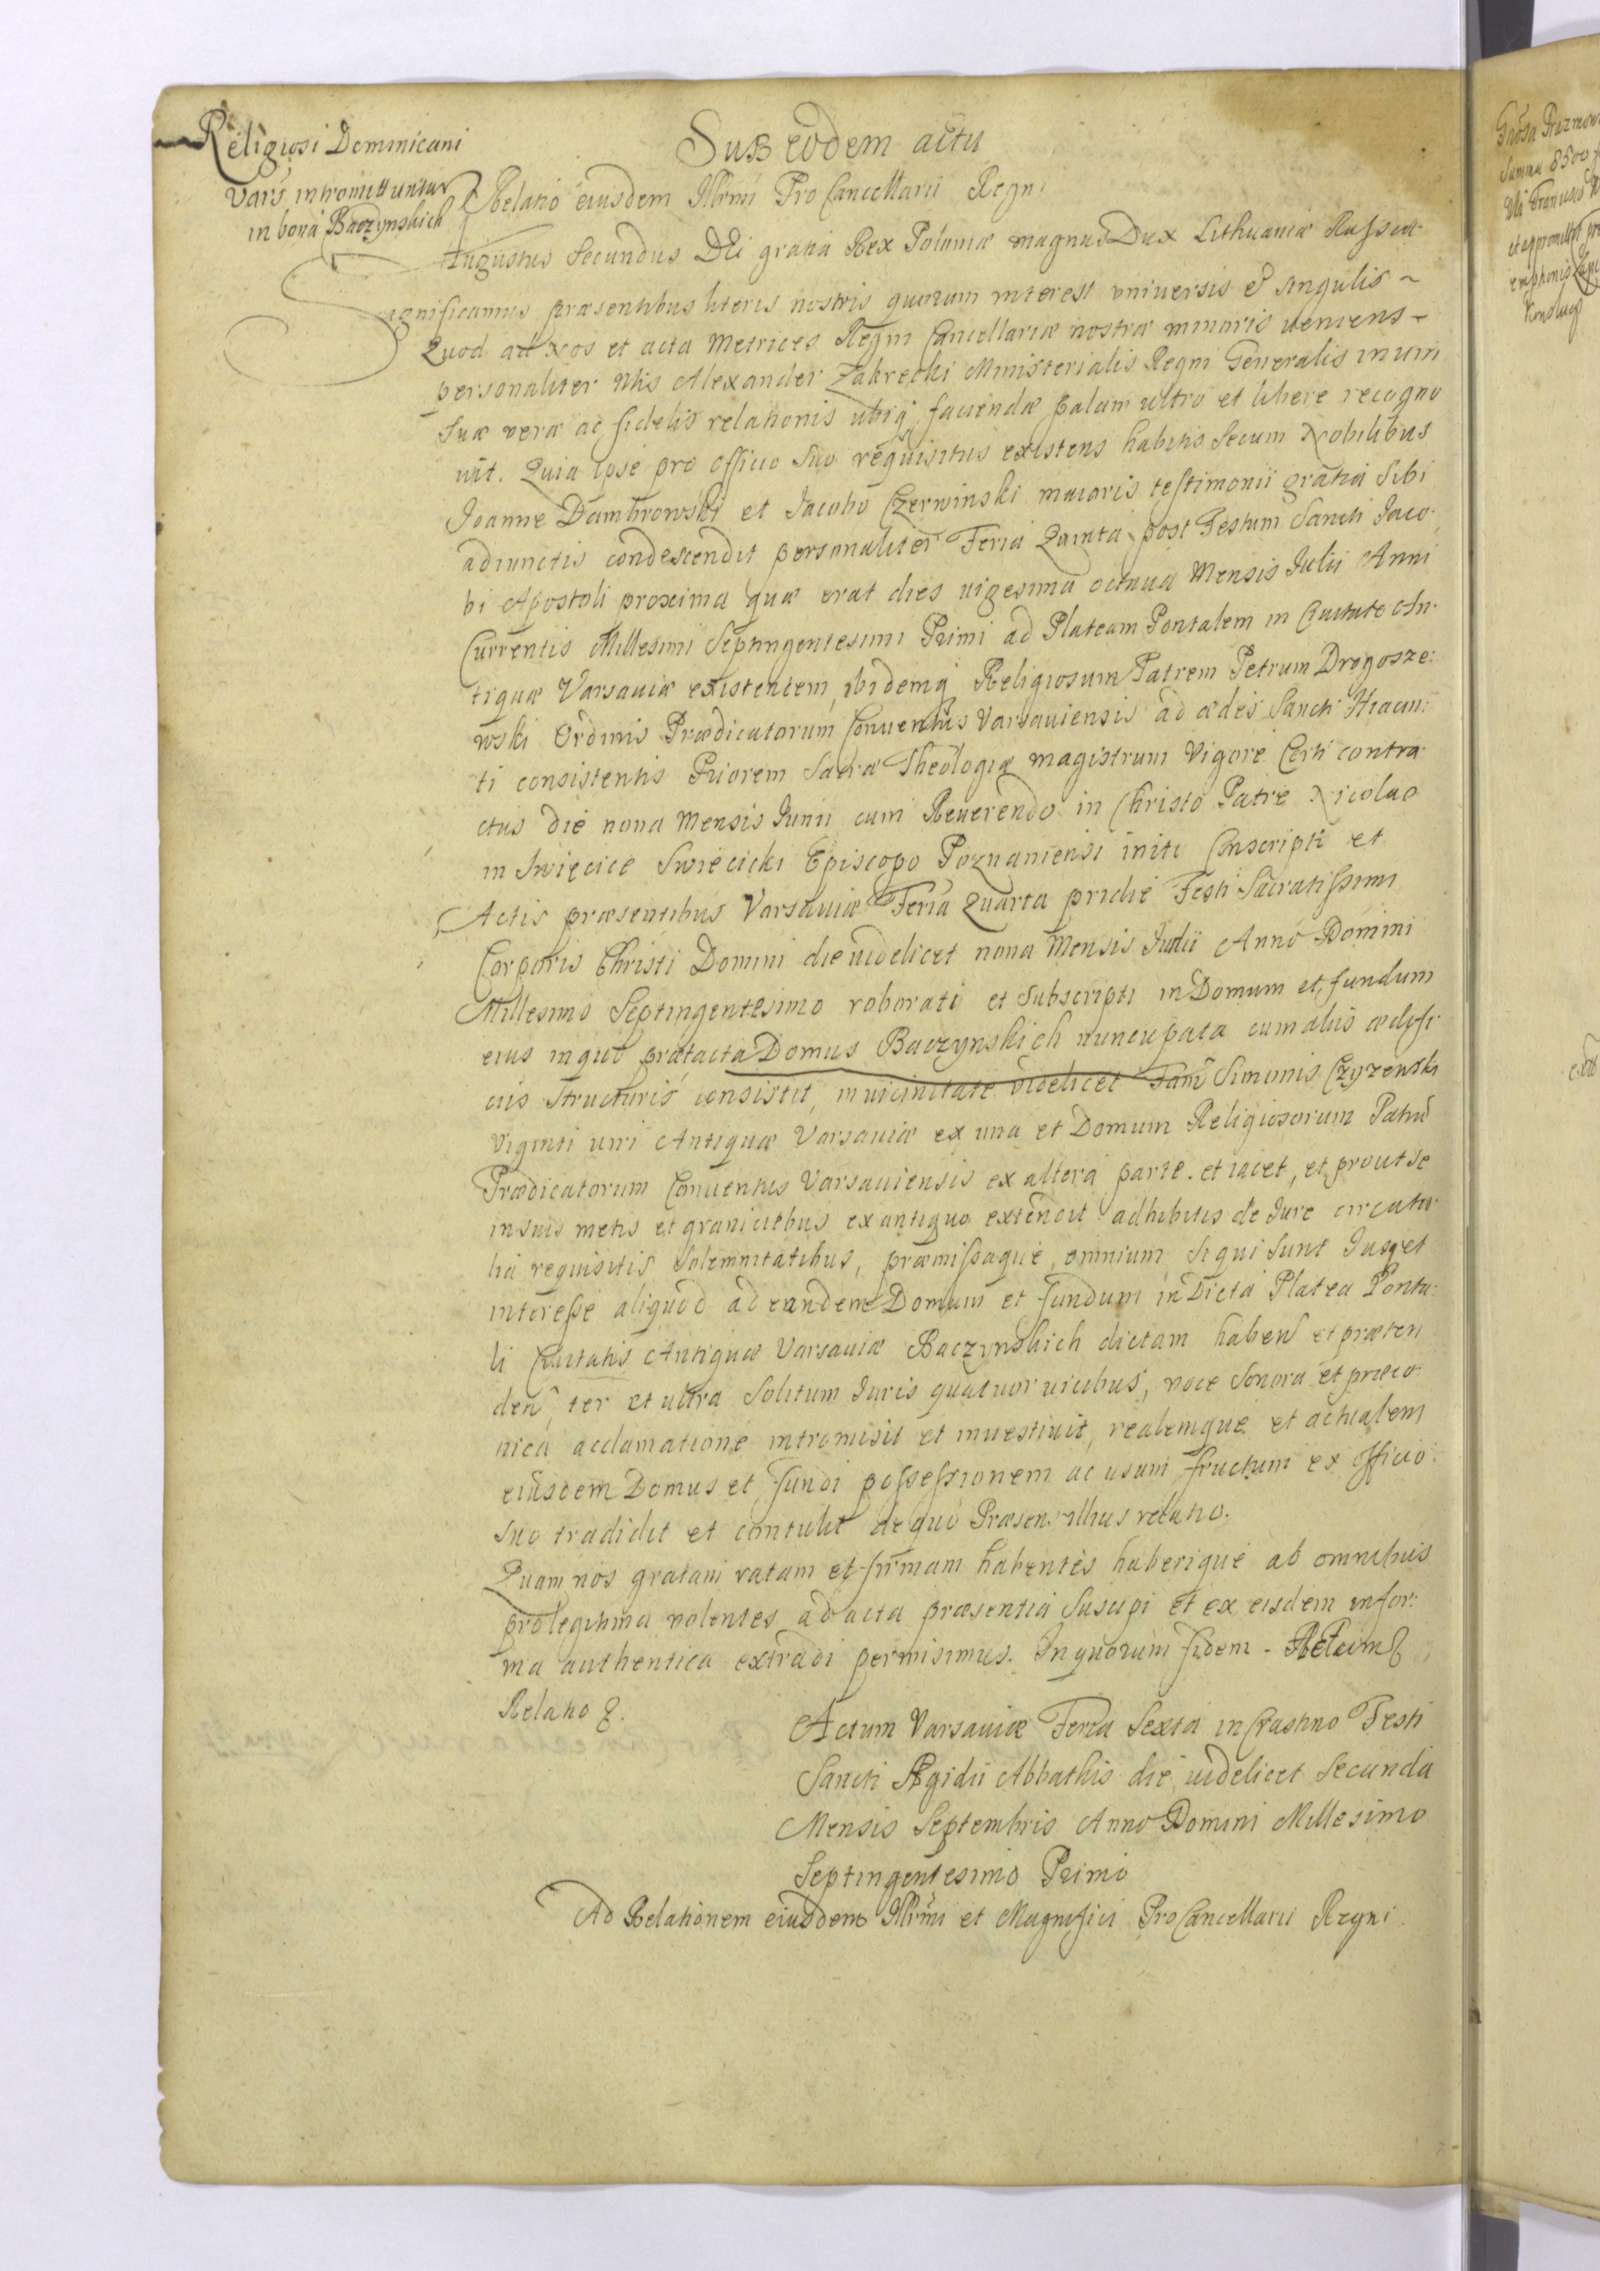 Religiosi Dominicani
Vars intromittuntur
in bona Baczynskich
Sub eodem actu
Relatio eiusdem Illrmi ProCancellarii Regni
Augustus Secundus Dei gratia Rex Poloniæ magnus Dux Lithuaniæ Russiæ
Significamus præsentibus literis nostris quorum interest universis & singulis ~
Quod ad Nos et acta Metrices Regni Cancellariæ nostræ minoris veniens ~
personaliter Mis Alexander Zakrecki Ministerialis Regni Generalis in vim
suæ veræ ac fidelis relationis ubiq faciendæ palam ultro et libere recogno
vit. Quia ipse pro officio suo requisitus existens habitis secum Nobilibus
Joanne Dambrowski et Jacobo Czerwinski maioris testimonii gratia sibi
adiunctis condescendit personaliter Feria Quinta post Festum Sancti Jaco-
bi Apostoli proxima quæ erat dies vigesima octava Mensis Julii Anni
Currentis Millesimi Septingentesimi Primi ad Plateam Pontalem in Civitate An-
tiquæ Varsaviæ existentem, ibidemq Religiosum Patrem Petrum Drogosze:
wski Ordinis Prædicatorum Conventus Varsaviensis ad ædes Sancti Hiacin:
ti consistentis Priorem Sacræ Theologiæ magistrum Vigore Certi contra-
ctus die nona Mensis Junii cum Reverendo in Christo Patre Nicolao
in Swięcice Swięcicki Episcopo Poznaniensi initi Conscripti et
Actis præsentibus Varsaviæ Feria Quarta pridie Festi Sacratissimi
Corporis Christi Domini die videlicet nona Mensis Junii Anno Domini
Millesimo Septingentesimo roborati et subscripti in Domum et fundum
eius in quo prætacta Domus Baczynskich nuncupata cum aliis ædifi-
ciis structuris consistit, in vicinitate videlicet Fam Simonis Czyzenski
Viginti viri Antiquæ Varsaviæ ex una et Domum Religiosorum Patrū
Prædicatorum Conventus Varsaviensis ex altera parte. et iacet, et prout se
in suis metis et graniciebus ex antiquo extendit adhibitis de Jure circa ta-
lia requisitis Solemnitatibus, præmissaque omnium si qui sunt Jus et
interesse aliquod ad eandem Domum et fundum in Dicta Platea Ponta-
li Civitatis Antiquæ Varsaviæ Baczynskich dictam haben et præten
den, ter et ultra Solitum Juris quatuor vicibus, voce sonora et præco-
nica acclamatione intromisit et investivit, realemque et actualem
eiusdem Domus et fundi possessionem ac usum fructum ex officio
suo tradidit et contulit de quo Præsens illius relatio.
Quam nos gratam ratam et firmam habentes haberique ab omnibus
pro legitima volentes ad acta præsentia suscipi et ex eisdem in for:
ma authentica extradi permisimus. In quorum fidem -
Relatio
Actum Varsaviæ Feria Sexta in Crastino Festi
Sancti Ægidii Abbathis die videlicet Secunda
Mensis Septembris Anno Domini Millesimo
Septingentesimo Primo
Ad Relationem eiusdem Illrmi et Magnifici ProCancellarii Regni